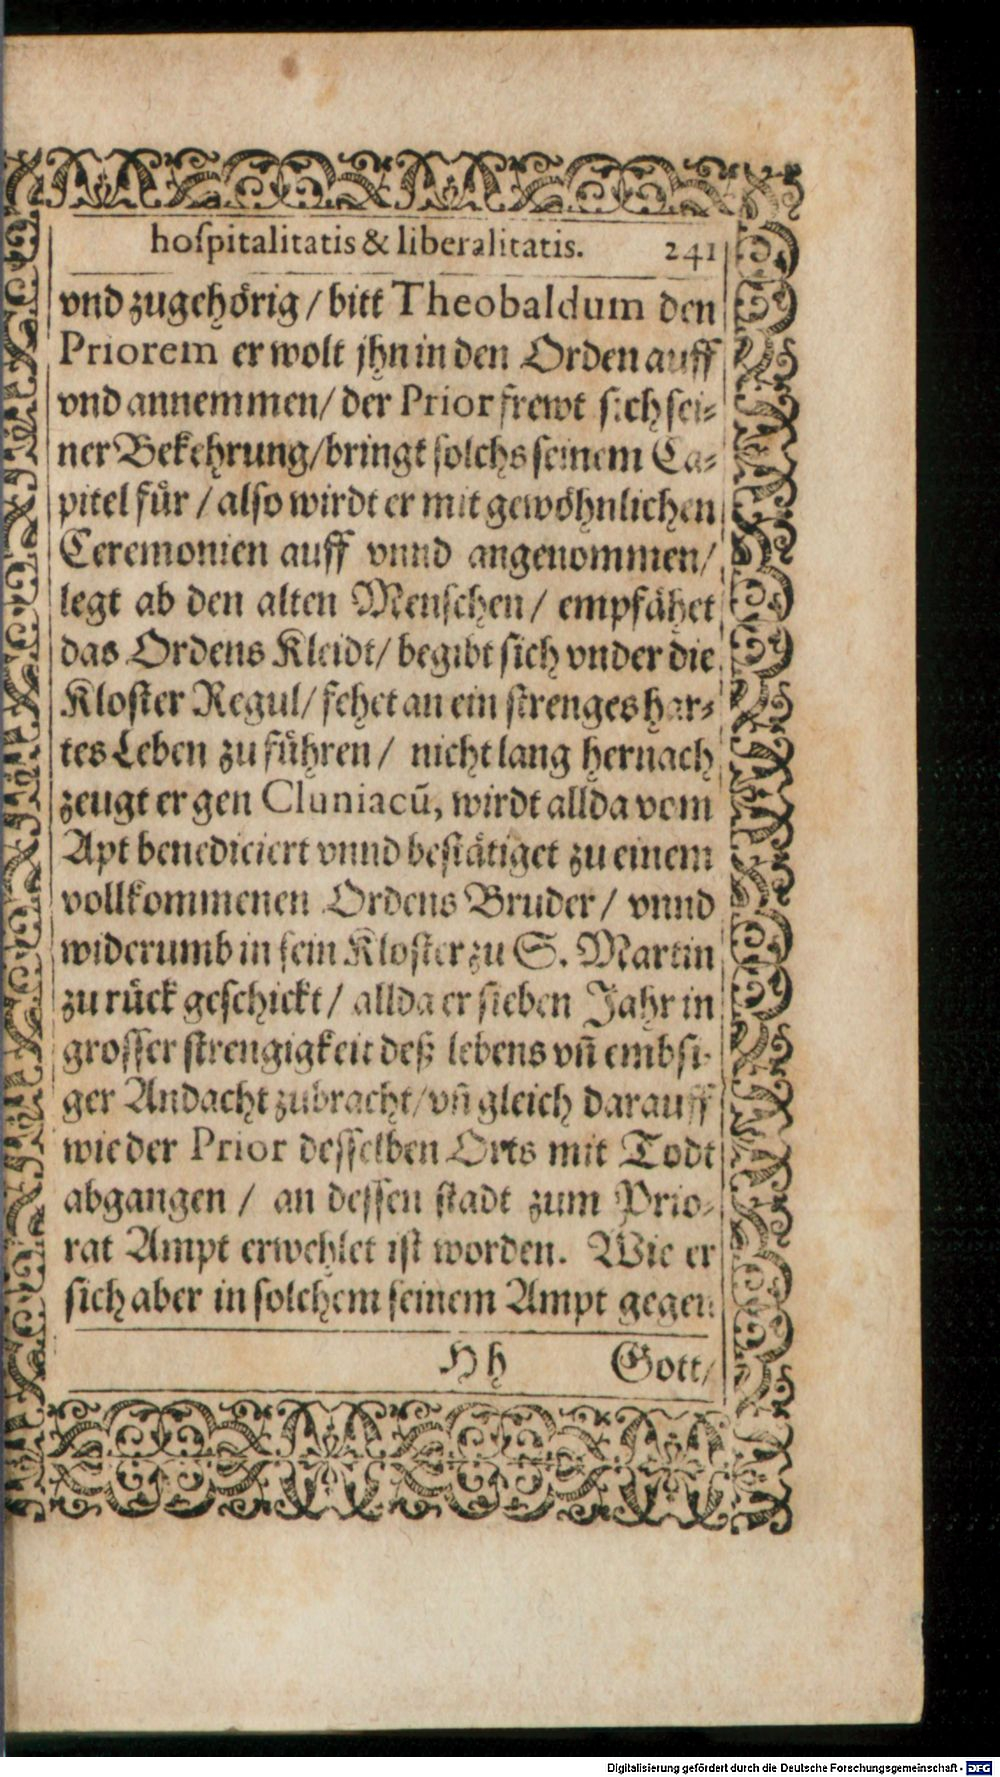 hoſpitalitatis & liberalitatis. 241
vnd zugehörig / bitt Theobaldum den
Priorem er wolt jhn in den Orden auff
vnd annemmen / der Prior frewt sich sei⸗
ner Bekehrung / bringt solchs seinem Ca⸗
pitel für / also wirdt er mit gewöhnlichen
Ceremonien auff vnnd angenommen /
legt ab den alten Menschen / empfähet
das Ordens Kleidt / begibt sich vnder die
Kloster Regul / fehet an ein strenges har⸗
tes Leben zu führen / nicht lang hernach
zeugt er gen Cluniacū, wirdt allda vom
Apt benediciert vnnd bestätiget zu einem
vollkommenen Ordens Bruder / vnnd
widerumb in sein Kloster zu S. Martin
zu rück geschickt / allda er sieben Jahr in
grosser strengigkeit deß lebens vñ embsi⸗
ger Andacht zubracht / vñ gleich darauff
wie der Prior desselben Orts mit Todt
abgangen / an dessen stadt zum Prio⸗
rat Ampt erwehlet ist worden. Wie er
sich aber in solchem seinem Ampt gegen
Hh Gott /
Digitalisierung gefördert durch die Deutsche Forschungsgemeinschaft - DFG